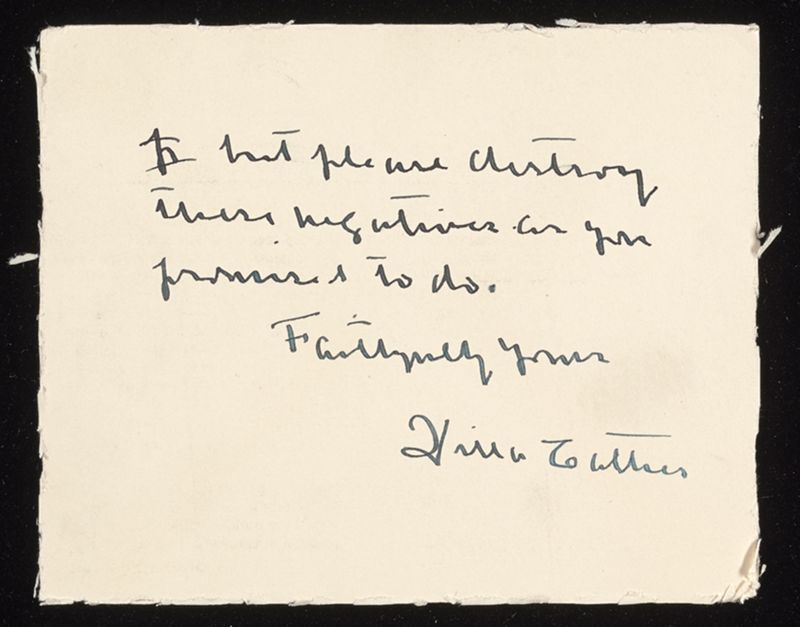 but please destroy
these negatives as you
promised to do.
Faithfully yours
Willa Cather